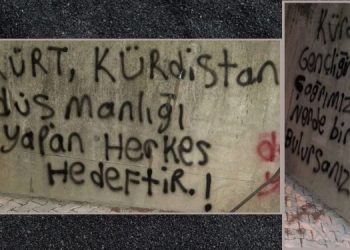 KÜRT, KÜRdistan
düşmanlığı
yapan Herkes
HEDEFTİR.!
Kürd
Gençliği
Çağrımız
Nerde bir
Bulursanız